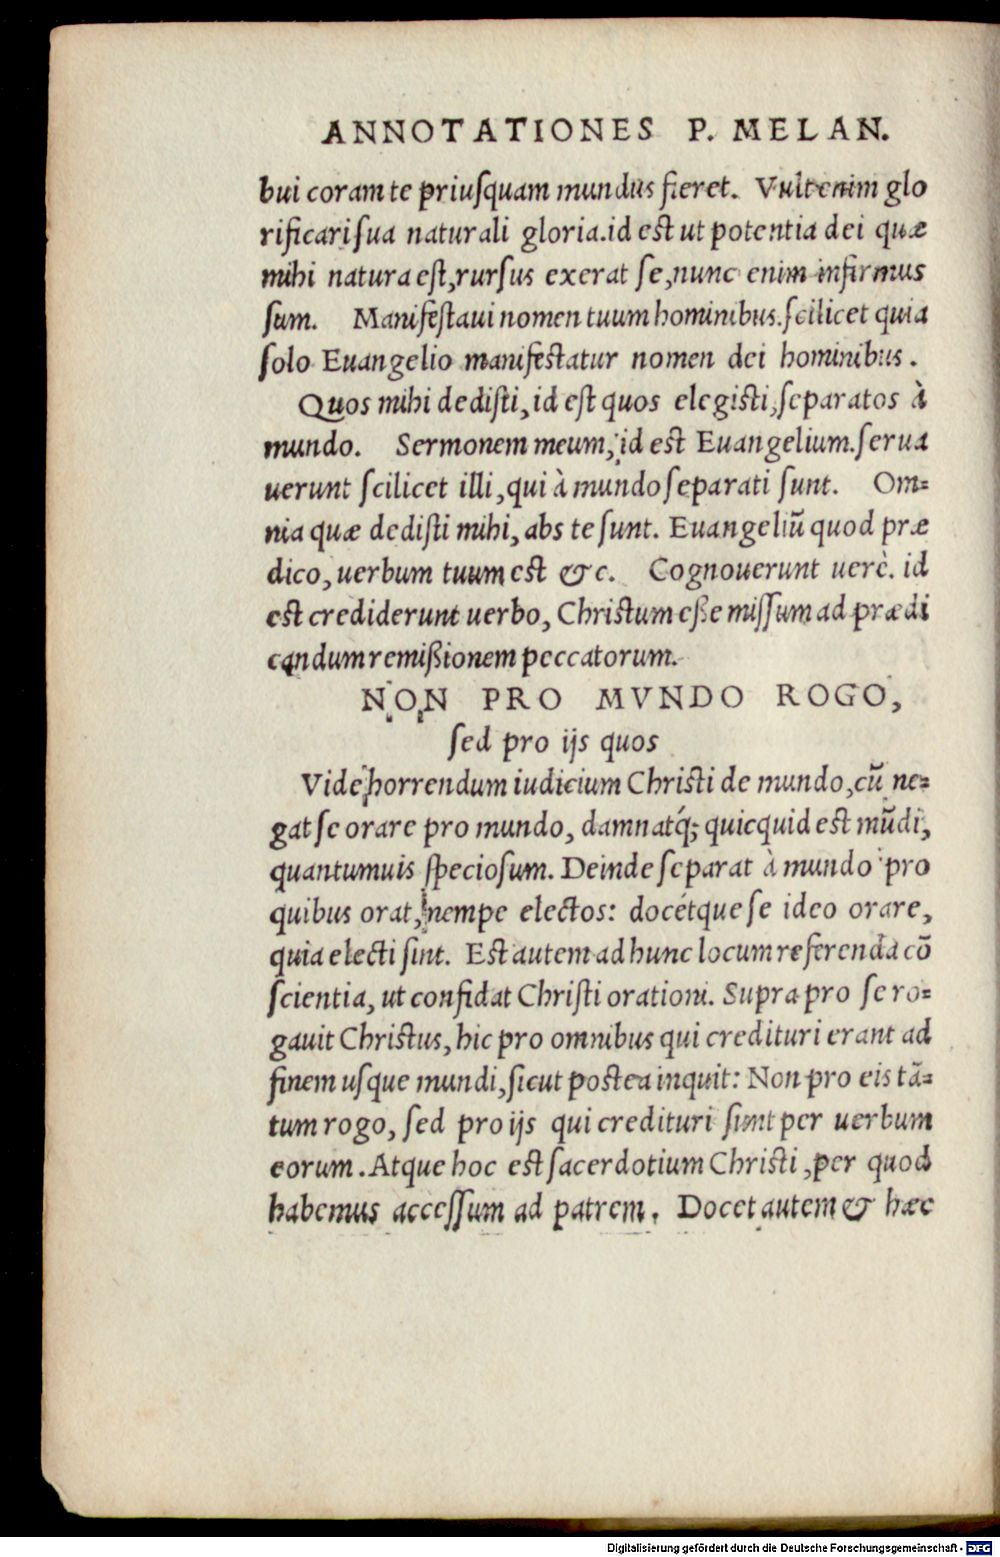 ANNOTATIONES P. MELAN.
bui coram te priuſquam mundus fieret. Vult enim glo
rificari ſua naturali gloria. id eſt ut potentia dei quæ
mihi natura eſt, rurſus exerat ſe, nunc enim infirmus
ſum. Manifeſtaui nomen tuum hominibus. ſcilicet quia
ſolo Euangelio manifeſtatur nomen dei hominibus.
Quos mihi dediſti, id eſt quos elegiſti, ſeparatos à
mundo. Sermonem meum, id eſt Euangelium. ſerua
uerunt ſcilicet illi, qui à mundo ſeparati ſunt. Om=
nia quæ dediſti mihi, abs te ſunt. Euangeliũ quod præ
dico, uerbum tuum eſt &c. Cognouerunt uerè. id
eſt crediderunt uerbo, Chriſtum eſſe miſſum ad prædi
candum remiſsionem peccatorum.
NON PRO MVNDO ROGO,
ſed pro ijs quos
Vide horrendum iudicium Chriſti de mundo, cũ ne=
gat ſe orare pro mundo, damnatq́; quicquid eſt mũdi,
quantumuis ſpecioſum. Deinde ſeparat à mundo pro
quibus orat, nempe electos: docétque ſe ideo orare,
quia electi ſint. Eſt autem ad hunc locum referenda cõ
ſcientia, ut confidat Chriſti orationi. Supra pro ſe ro=
gauit Chriſtus, hic pro omnibus qui credituri erant ad
finem uſque mundi, ſicut poſtea inquit: Non pro eis tã=
tum rogo, ſed pro ijs qui credituri ſunt per uerbum
eorum. Atque hoc eſt ſacerdotium Chriſti, per quod
habemus acceſſum ad patrem. Docet autem & hæc
Digitalisierung gefördert durch die Deutsche Forschungsgemeinschaft - DFG